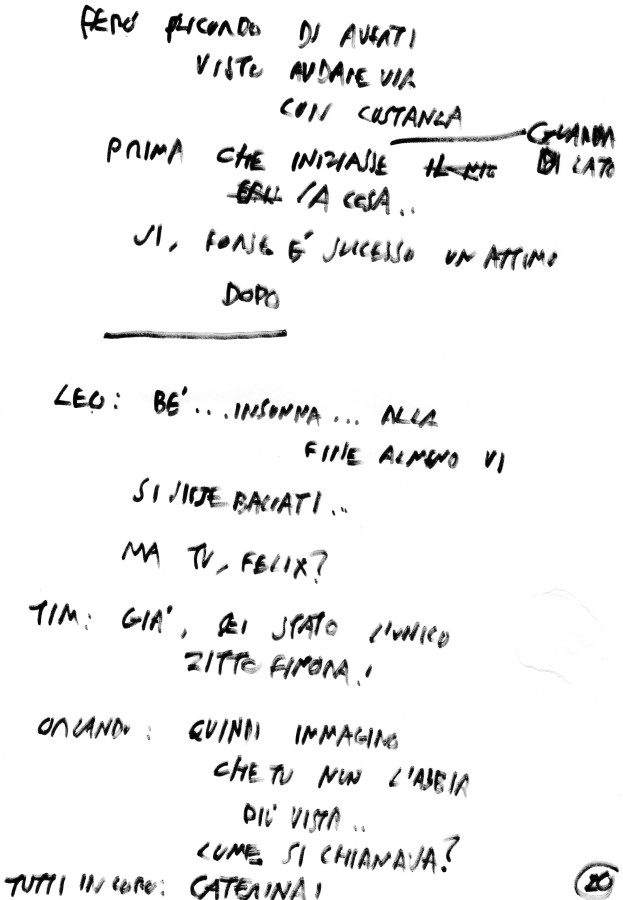 PERÒ RICORDO DI AVERTI
VISTO ANDARE VIA
CON COSTANZA
GUARDA
DI LATO
PRIMA CHE INIZIASSE IL MIO
LA CESA..
SI, FORSE È SUCCESSO UN ATTIMO
DOPO
LEO: BE'... INSOMMA... ALLA
FINE ALMENO VI
SI SIETE BACIATI..
MA TU, FELIX?
TIM: GIÀ, SEI STATO L'UNICO
ZITTO FINORA!
ORLANDO: QUINDI IMMAGINO
CHE TU NON L'ABBIA
PIÙ VISTA..
COME SI CHIAMAVA?
TUTTI IN CORO: CATERINA!
20